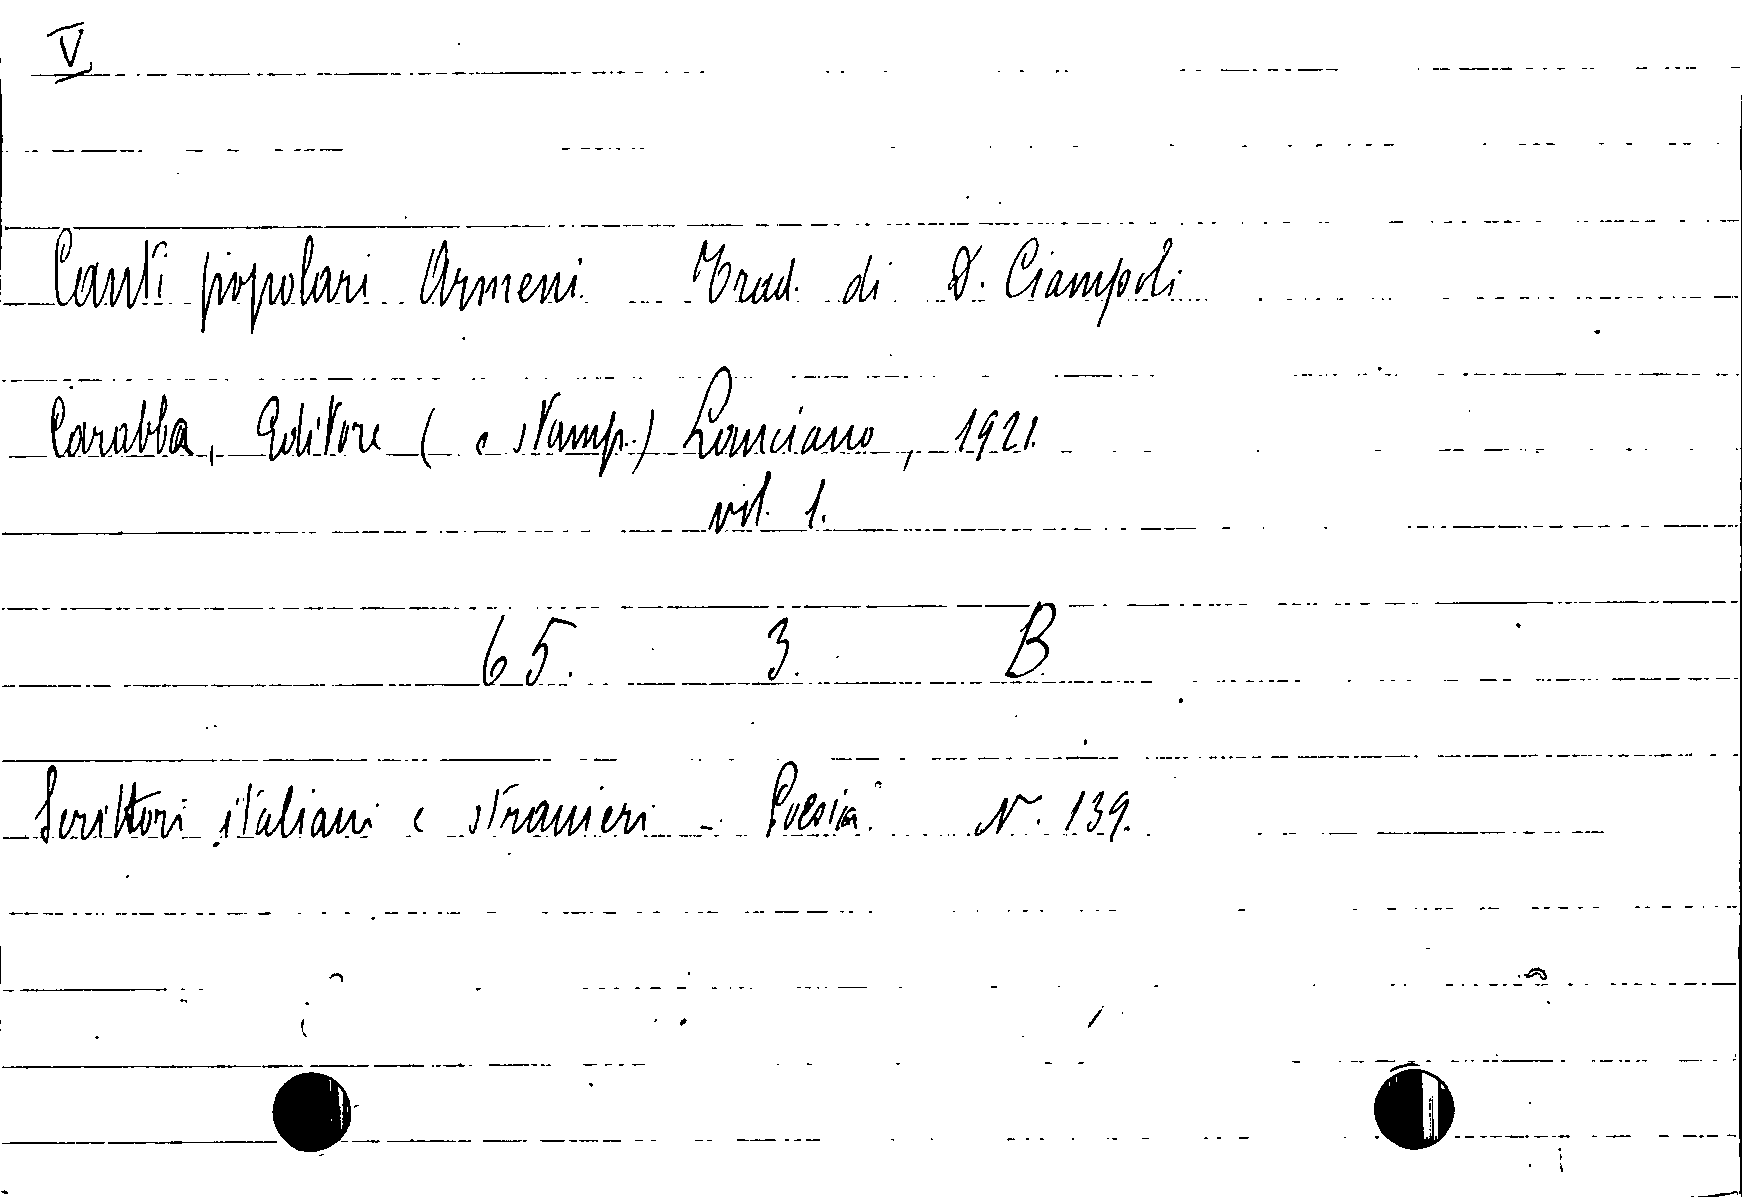 V
Canti popolari Armeni Trad. di D. Ciampoli
Carabba, Editore (e stamp.) Lanciano, 1921.
vol. 1.
65. 3. B
Scrittori italiani e stranieri - Poesia N. 139.